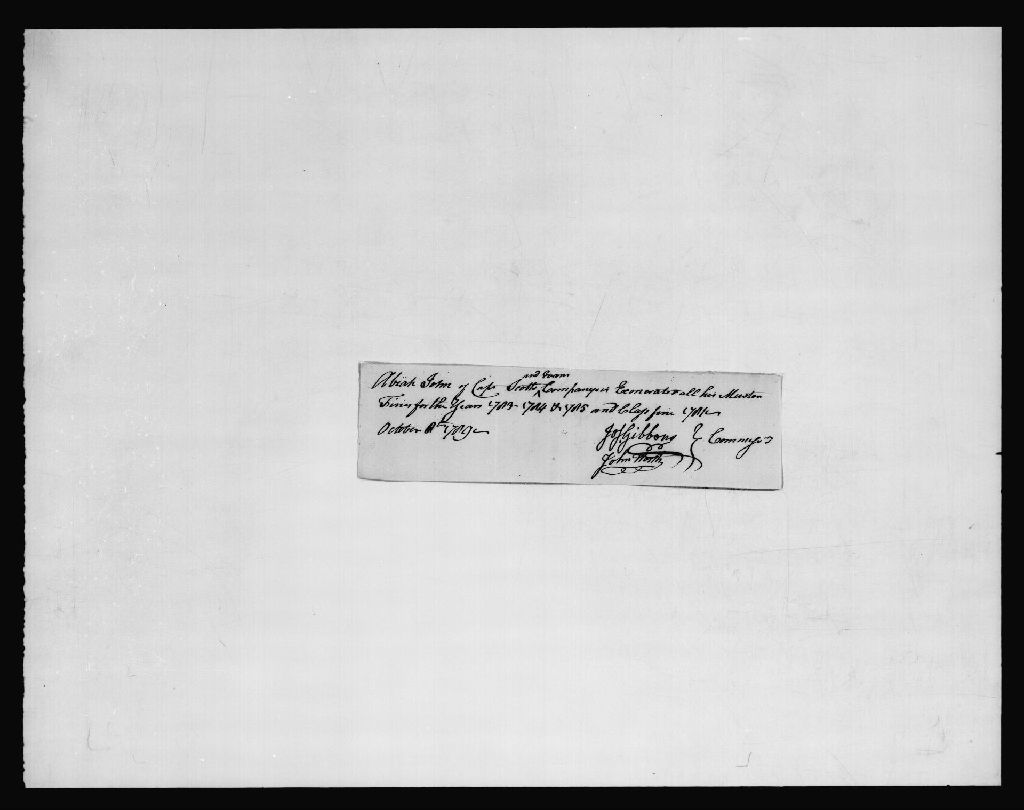 Abiah John of Capt Scotts Company is Exonerated all his Muster
Fines for the Years 1783 1784 & 1785 and Class fine 1781
October 8th 1789
Jos Gibbons
John North
Commrs